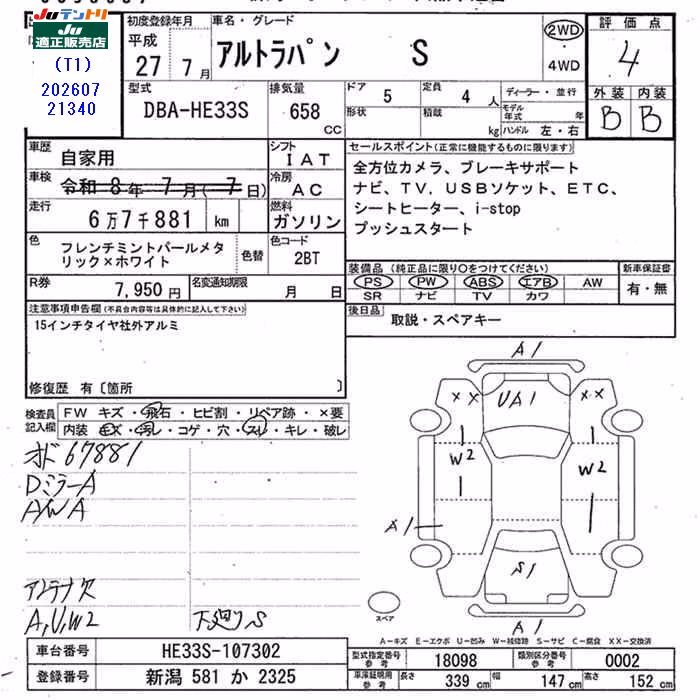 JUテントリ
JU
適正販売店
(T1)
202607
21340
初度登録年月
平成
27 7月
車名・グレード
アルトラパン S
2WD
4WD
評価点
4
外装 内装
B B
型式
DBA-HE33S
排気量
658
CC
ドア
5
定員
4 人
形状
積載
kg
ディーラー・並行
モデル年式 年
ハンドル 左・右
車歴
自家用
シフト
IAT
車検
令和 8年 7月(7日)
冷房
AC
走行
6万7千881 km
燃料
ガソリン
色
フレンチミントパールメタ
リック×ホワイト
色替
色コード
2BT
R券
7,950 円
名変通知期限
月 日
セールスポイント(正常に機能するものに限ります)
全方位カメラ、ブレーキサポート
ナビ、TV、USBソケット、ETC、
シートヒーター、i-stop
プッシュスタート
装備品 (純正品に限り○をつけてください)
PS PW ABS エアB AW
SR ナビ TV カワ
新車保証書
有・無
後日品
取説・スペアキー
注意事項申告欄(不具合内容等は具体的に記入して下さい)
15インチタイヤ社外アルミ
修復歴 有〔箇所 〕
検査員
記入欄
FW キズ・飛石・ヒビ割・リペア跡・×要
内装 キズ・汚レ・コゲ・穴・スレ・キレ・破レ
オド 67881
DミラーA
A/W A
アンテナ欠
A,U,W2
下廻りS
A1
UA1
××
××
W2
W2
A1
S1
A1
スペア
A-キズ E-エクボ U-凹み W-補修跡 S-サビ C-腐食 XX-交換済
車台番号
HE33S-107302
登録番号
新潟 581 か 2325
型式指定番号
参考
18098
類別区分番号
参考
0002
車庫証明用
参考
長さ 339 cm
幅 147 cm
高さ 152 cm